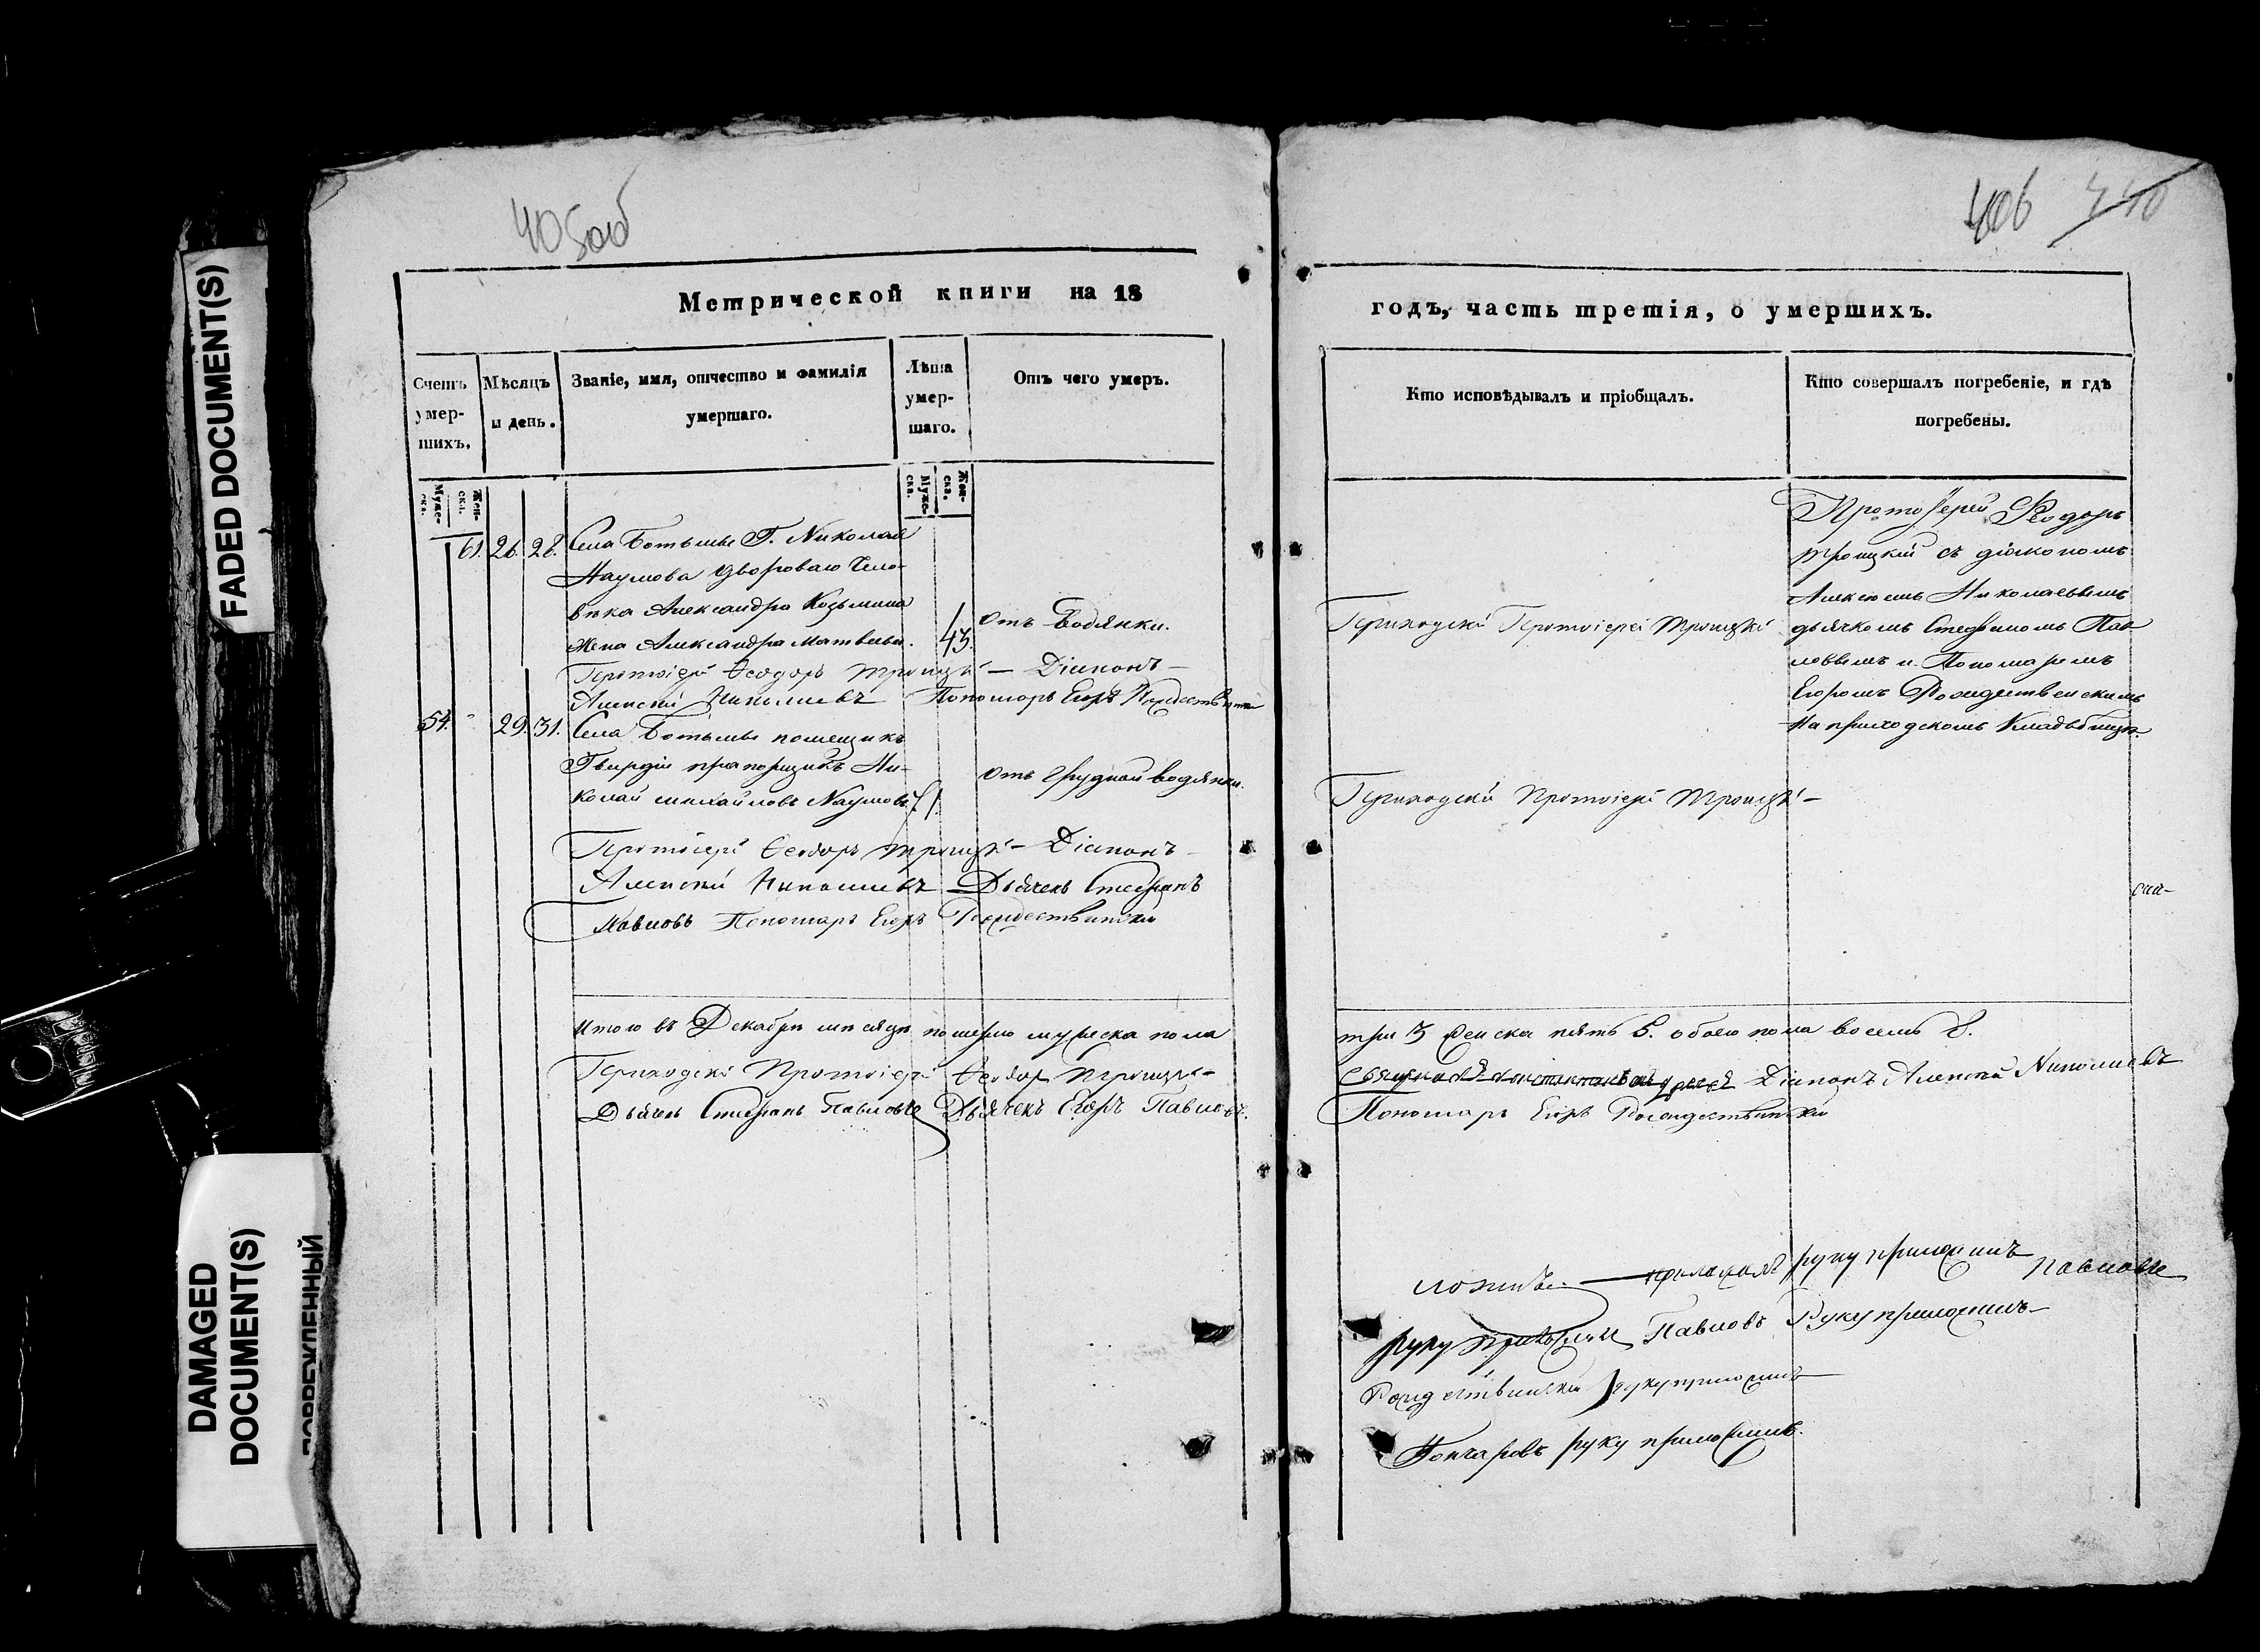 FADED DOCUMENT(S)
DAMAGED
DOCUMENT(S)
ПОВРЕЖДЕННЫЙ
405об
406 440
Метрической книги на 18
годъ, часть третія, о умершихъ.
Счетъ умер-шихъ.
Мѣсяцъ и день.
Званіе, имя, отчество и фамилія
умершаго.
Лѣта умер-шаго.
Отъ чего умеръ.
Кто исповѣдывалъ и пріобщалъ.
Кто совершалъ погребеніе, и гдѣ
погребены.
Муже-ска.
Жен-ска.
Муже-ска.
Жен-ска.
61. 26. 28. Села Ботьмы Г. Николая
Наумова двороваго чело-
вѣка Александра Козьмина
жена Александра Матвеева.
43.
отъ водянки.
Приходскій Протоіерей Троицкій
Протоіерей Феодоръ
Троицкій съ діакономъ
Алексѣемъ Николаевымъ
дьячкомъ Стефаномъ Пав
ловымъ и Пономаремъ
Егоромъ Рождественскимъ
на приходскомъ кладбищѣ.
Протоіерей Ѳеодоръ Троицкій – Діаконъ –
Алексѣй Николаевъ Пономарь Егоръ Рождественскій
54. 29. 31. Села Ботьмы помещикъ
Гвардіи прапорщикъ Ни-
колай Михайловъ Наумовъ
отъ грудной водянки.
Приходскій Протоіерей Троицкій –
Протоіерей Ѳеодоръ Троицкій – Діаконъ
Алексѣй Николаевъ Дьячекъ Стефанъ
Павловъ Пономарь Егоръ Рождественскій
Итого въ Декабрѣ мѣсяцѣ померло мужеска пола
три 3 женска пять 5. обоего пола восемь 8.
Приходскій Протоіерей Ѳеодоръ Троицкій –
Діаконъ Алексѣй Николаевъ
Дьячекъ Стефанъ Павловъ Дьячекъ Егоръ Павловъ.
Пономарь Егоръ Рождественскій
ложилъ. руку приложилъ
Павловъ
руку приложилъ Павловъ Руку приложилъ
Рождественскій руку приложилъ
Гончаровъ руку приложилъ.